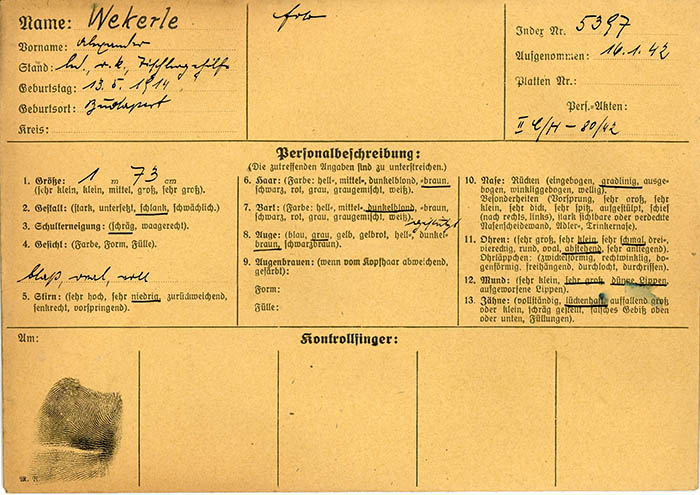 Name: Wekerle
Vorname: Alexander
Stand: led., r. k., Tischlergehilfe
Geburtstag: 13. 5. 1914
Geburtsort: Budapest
Kreis:
Index Nr. 5397
Aufgenommen: 16.1.42
Platten Nr.:
Pers.-Akten:
II C/H - 80/42
Personalbeschreibung:
(Die zutreffenden Angaben sind zu unterstreichen.)
1. Größe: 1 m 73 cm
(sehr klein, klein, mittel, groß, sehr groß).
2. Gestalt: (stark, untersetzt, schlank, schwächlich.)
3. Schulterneigung: (schräg, waagerecht.)
4. Gesicht: (Farbe, Form, Fülle).
blaß, oval, voll
5. Stirn: (sehr hoch, sehr niedrig, zurückweichend,
senkrecht, vorspringend).
6. Haar: (Farbe: hell-, mittel-, dunkelblond, -braun,
schwarz, rot, grau, graugemischt, weiß).
7. Bart: (Farbe: hell-, mittel- dunkelblond, -braun,
schwarz, rot, grau, graugemischt, weiß)
8. Auge: (blau, grau, gelb, gelbrot, hell-, dunkel-
braun, schwarzbraun).
9. Augenbrauen: (wenn vom Kopfhaar abweichend,
gefärbt):
Form:
Fülle:
10. Nase: Rücken (eingebogen, gradlinig, ausge-
bogen, winkliggebogen, wellig).
Besonderheiten (Vorsprung, sehr groß, sehr
klein, sehr dick, sehr spitz, aufgestülpt, schief
(nach rechts, links), stark sichtbare oder verdeckte
Nasenscheidewand, Adler-, Trinkernase).
11. Ohren: (sehr groß, sehr klein, sehr schmal, drei-,
viereckig, rund, oval, abstehend, sehr anliegend).
Ohrläppchen: (zwickelförmig, rechtwinklig, bo-
genförmig, freihängend, durchlocht, durchrissen).
12. Mund: (sehr klein, sehr groß, dünne Lippen,
aufgeworfene Lippen).
13. Zähne: (vollständig, lückenhaft, auffallend groß
oder klein, schräg gestellt, falsches Gebiß oben
oder unten, Füllungen).
Am:
Kontrollfinger: